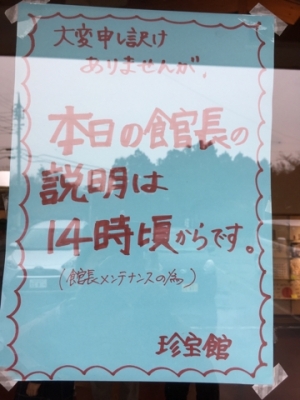 大変申し訳け
ありませんが、
本日の館長の
説明は
14時頃からです。
(館長メンテナンスの為)
珍宝館